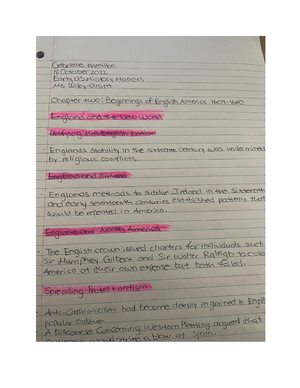 Gabrielle Hamilton
18 October 2022
Early US History Honors
Ms. Wiley-Grant
Chapter two: Beginnings of English America 1607-1660
England and the New World
Unifying the English Nation
- Englands stability in the sixteenth century was undermined
by religious conflicts.
England and Ireland
- Englands methods to subdue Ireland in the sixteenth
and early seventeenth centuries established patterns that
would be repeated in America.
England and North America
- The English crown issued charters for individuals such
Sir Humphrey Gilbert and Sir Walter Raleigh to colo
America at their own expense but both failed.
Spreading Protestantism
- Anti-Catholicism had become deeply in grained in English
popular culture.
- A Discourse Concerning Western Planting argued that
would strike a blow at Spain.